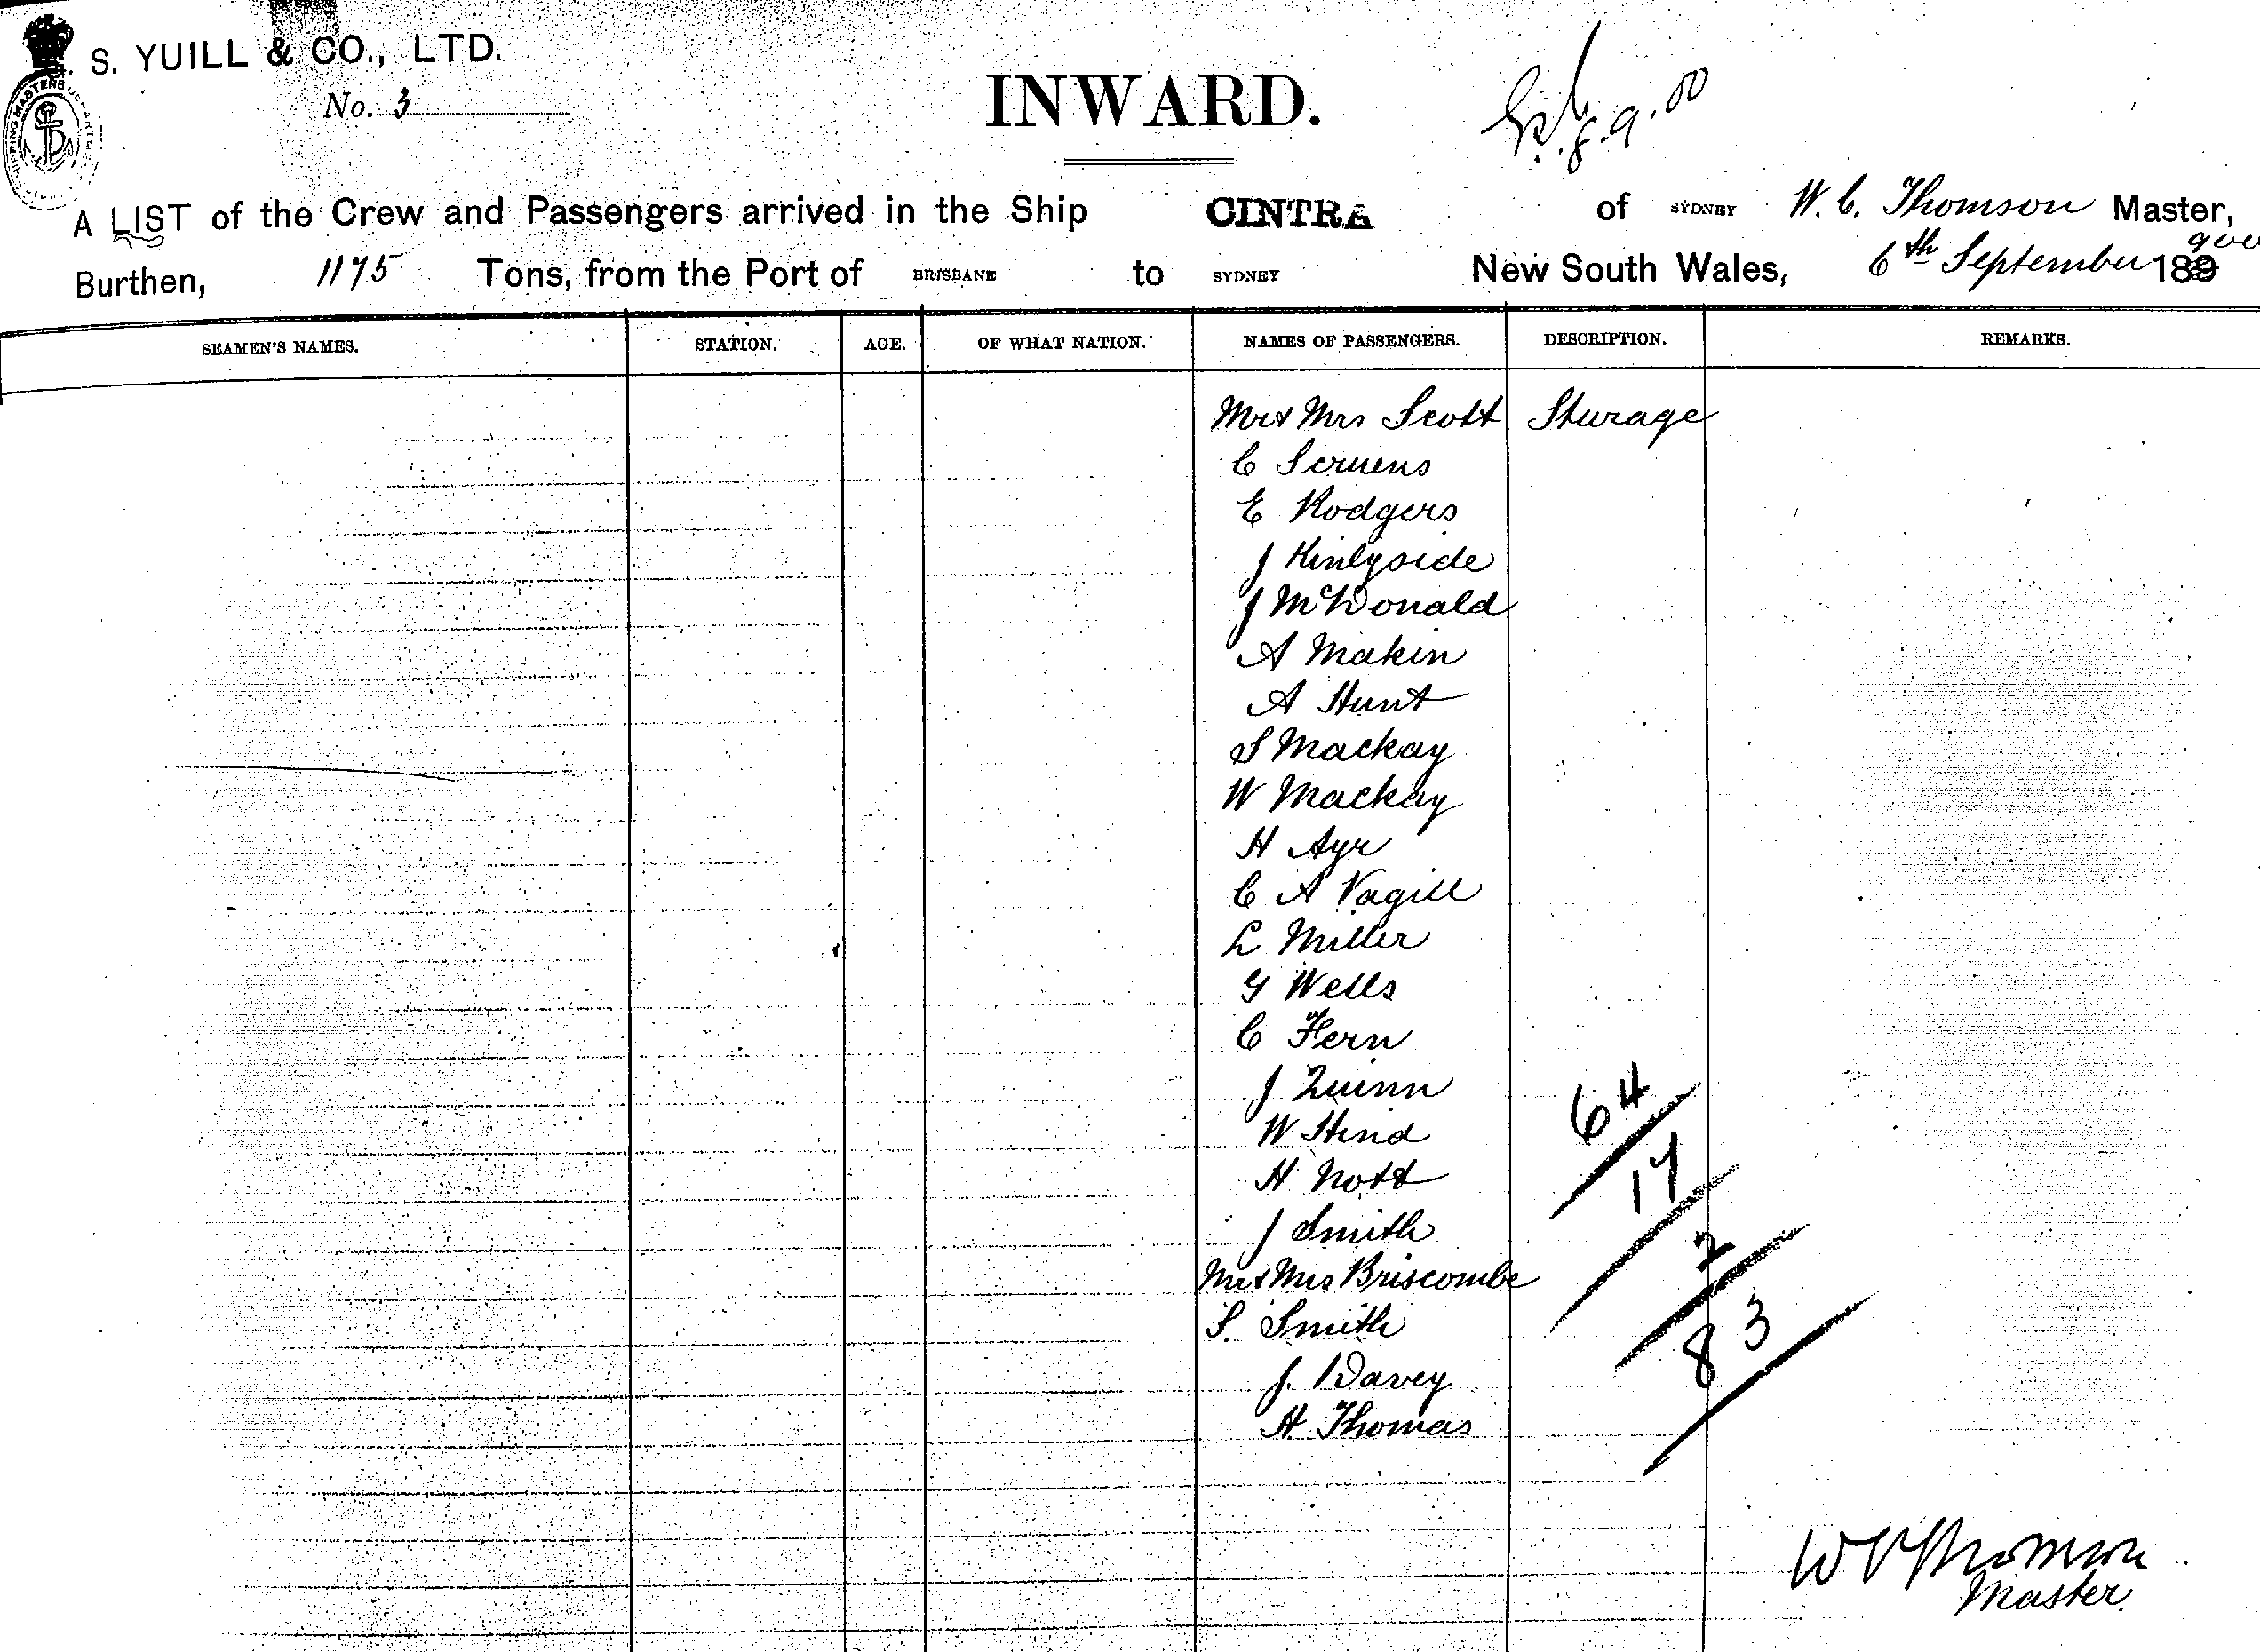 S. YUILL & CO., LTD.
No. 3
INWARD.
8.9.00
A LIST of the Crew and Passengers arrived in the Ship CINTRA of SYDNEY W. C. Thomson Master,
Burthen, 1175 Tons, from the Port of BRISBANE to SYDNEY New South Wales, 6th September 189
SEAMEN'S NAMES. STATION. AGE. OF WHAT NATION. NAMES OF PASSENGERS. DESCRIPTION. REMARKS.
Mr & Mrs Scott Sturage
C
E Rodgers
J Kinlyside
J McDonald
A Makin
A Hunt
S Mackay
W Mackay
H Ayr
C A Vagill
L Miller
G Wells
C Fern
J Quinn
W Hind
H Nott
J Smith
Mr & Mrs Briscombe
S. Smith
J. Davey
H Thomas
64
17
2
83
W C Thomson
Master